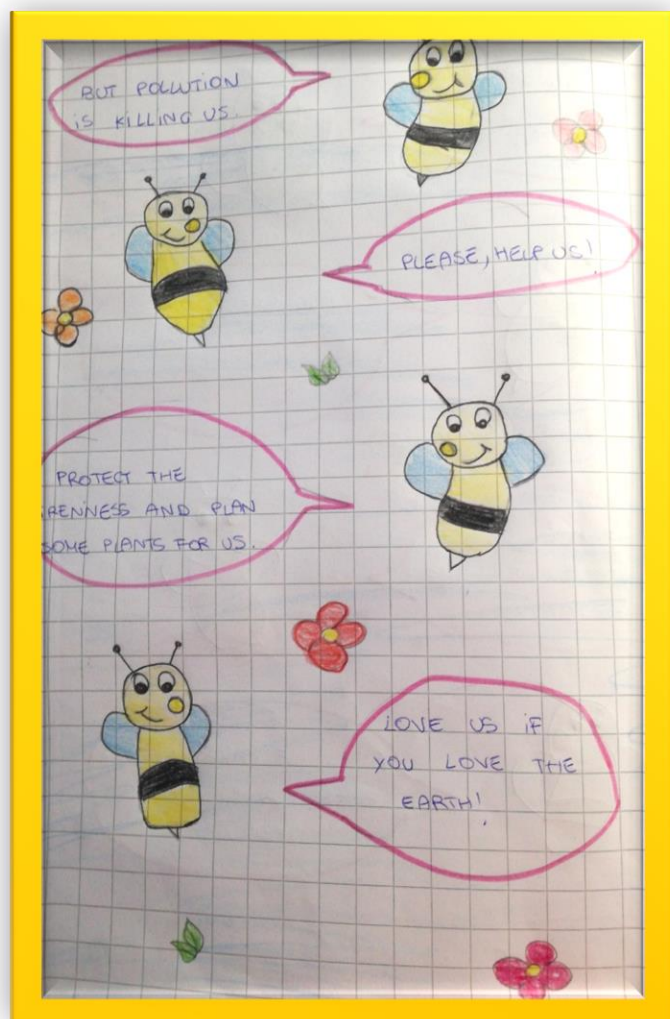 BUT POLLUTION
iS KILLING US.
PLEASE, HELP US!
PROTECT THE
RENNESS AND PLAN
SOME PLANTS FOR US.
LOVE US iF
YOU LOVE THE
EARTH!